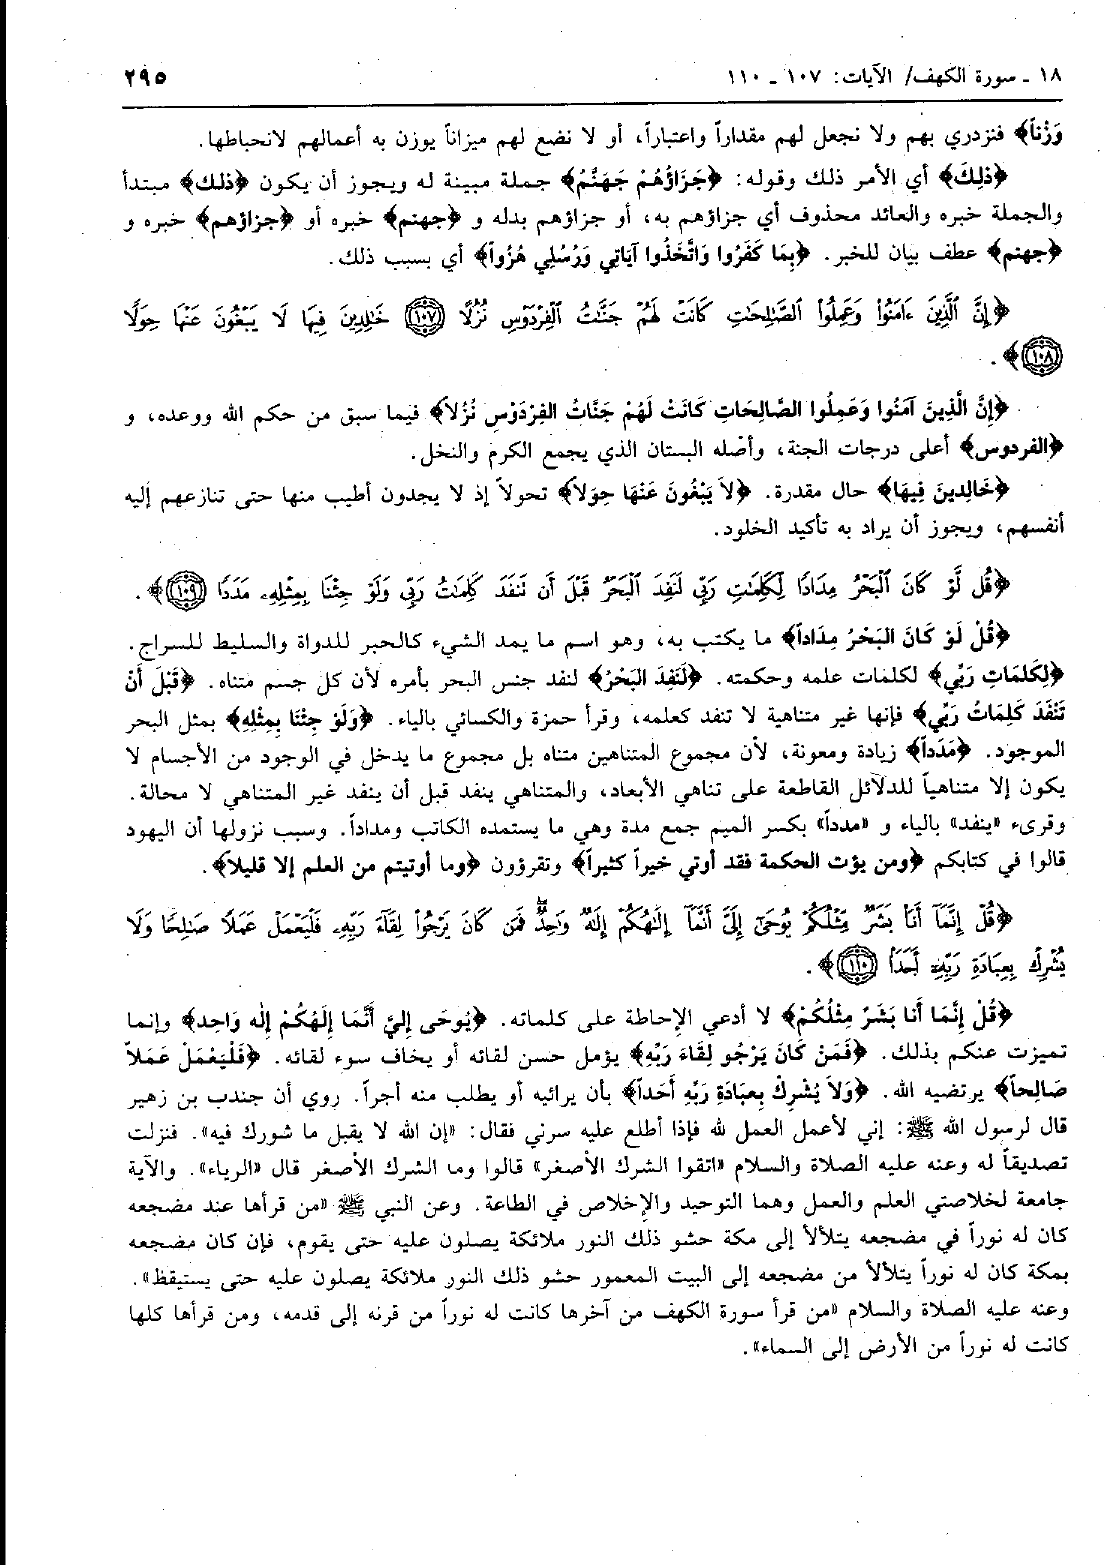 ١٨ ـ سورة الكهف/ الآيات: ١٠٧ ـ ١١٠
٢٩٥
وَزْناً﴾ فنزدري بهم ولا نجعل لهم مقداراً واعتباراً، أو لا نضع لهم ميزاناً يوزن به أعمالهم لانحباطها.
﴿ذٰلِكَ﴾ أي الأمر ذلك وقوله: ﴿جَزَاؤُهُمْ جَهَنَّمُ﴾ جملة مبينة له ويجوز أن يكون ﴿ذلك﴾ مبتدأ
والجملة خبره والعائد محذوف أي جزاؤهم به، أو جزاؤهم بدله و ﴿جهنم﴾ خبره أو ﴿جزاؤهم﴾ خبره و
﴿جهنم﴾ عطف بيان للخبر. ﴿بِمَا كَفَرُوا وَاتَّخَذُوا آيَاتِي وَرُسُلِي هُزُواً﴾ أي بسبب ذلك.
﴿إِنَّ ٱلَّذِينَ ءَامَنُوا۟ وَعَمِلُوا۟ ٱلصَّٰلِحَٰتِ كَانَتْ لَهُمْ جَنَّٰتُ ٱلْفِرْدَوْسِ نُزُلًا ۝١٠٧ خَٰلِدِينَ فِيهَا لَا يَبْغُونَ عَنْهَا حِوَلًا
۝١٠٨﴾.
﴿إِنَّ الَّذِينَ آمَنُوا وَعَمِلُوا الصَّالِحَاتِ كَانَتْ لَهُمْ جَنَّاتُ الفِرْدَوْسِ نُزُلاً﴾ فيما سبق من حكم الله ووعده، و
﴿الفردوس﴾ أعلى درجات الجنة، وأصله البستان الذي يجمع الكرم والنخل.
﴿خَالِدِينَ فِيهَا﴾ حال مقدرة. ﴿لاَ يَبْغُونَ عَنْهَا حِوَلاً﴾ تحولاً إذ لا يجدون أطيب منها حتى تنازعهم إليه
أنفسهم، ويجوز أن يراد به تأكيد الخلود.
﴿قُل لَّوْ كَانَ ٱلْبَحْرُ مِدَادًا لِّكَلِمَٰتِ رَبِّى لَنَفِدَ ٱلْبَحْرُ قَبْلَ أَن تَنفَدَ كَلِمَٰتُ رَبِّى وَلَوْ جِئْنَا بِمِثْلِهِۦ مَدَدًا ۝١٠٩﴾.
﴿قُلْ لَوْ كَانَ البَحْرُ مِدَاداً﴾ ما يكتب به، وهو اسم ما يمد الشيء كالحبر للدواة والسليط للسراج.
﴿لِكَلِمَاتِ رَبِّي﴾ لكلمات علمه وحكمته. ﴿لَنَفِدَ البَحْرُ﴾ لنفد جنس البحر بأمره لأن كل جسم متناه. ﴿قَبْلَ أَنْ
تَنْفَدَ كَلِمَاتُ رَبِّي﴾ فإنها غير متناهية لا تنفد كعلمه، وقرأ حمزة والكسائي بالياء. ﴿وَلَوْ جِئْنَا بِمِثْلِهِ﴾ بمثل البحر
الموجود. ﴿مَدَداً﴾ زيادة ومعونة، لأن مجموع المتناهين متناه بل مجموع ما يدخل في الوجود من الأجسام لا
يكون إلا متناهياً للدلائل القاطعة على تناهي الأبعاد، والمتناهي ينفد قبل أن ينفد غير المتناهي لا محالة.
وقرىء «ينفد» بالياء و «مدداً» بكسر الميم جمع مدة وهي ما يستمده الكاتب ومداداً. وسبب نزولها أن اليهود
قالوا في كتابكم ﴿ومن يؤت الحكمة فقد أوتي خيراً كثيراً﴾ وتقرؤون ﴿وما أوتيتم من العلم إلا قليلاً﴾.
﴿قُلْ إِنَّمَآ أَنَا۠ بَشَرٌ مِّثْلُكُمْ يُوحَىٰٓ إِلَىَّ أَنَّمَآ إِلَٰهُكُمْ إِلَٰهٌ وَٰحِدٌ ۖ فَمَن كَانَ يَرْجُوا۟ لِقَآءَ رَبِّهِۦ فَلْيَعْمَلْ عَمَلًا صَٰلِحًا وَلَا
يُشْرِكْ بِعِبَادَةِ رَبِّهِۦٓ أَحَدًا ۝١١٠﴾.
﴿قُلْ إِنَّمَا أَنَا بَشَرٌ مِثْلُكُمْ﴾ لا أدعي الإحاطة على كلماته. ﴿يُوحَى إِليَّ أَنَّمَا إِلَهُكُمْ إِلٰه وَاحِد﴾ وإنما
تميزت عنكم بذلك. ﴿فَمَنْ كَانَ يَرْجُو لِقَاءَ رَبِّهِ﴾ يؤمل حسن لقائه أو يخاف سوء لقائه. ﴿فَلْيَعْمَلْ عَمَلاً
صَالِحاً﴾ يرتضيه الله. ﴿وَلاَ يُشْرِكْ بِعِبَادَةِ رَبِّهِ أَحَداً﴾ بأن يرائيه أو يطلب منه أجراً. روي أن جندب بن زهير
قال لرسول الله ﷺ: إني لأعمل العمل لله فإذا أطلع عليه سرني فقال: «إن الله لا يقبل ما شورك فيه». فنزلت
تصديقاً له وعنه عليه الصلاة والسلام «اتقوا الشرك الأصغر» قالوا وما الشرك الأصغر قال «الرياء». والآية
جامعة لخلاصتي العلم والعمل وهما التوحيد والإخلاص في الطاعة. وعن النبي ﷺ «من قرأها عند مضجعه
كان له نوراً في مضجعه يتلألأ إلى مكة حشو ذلك النور ملائكة يصلون عليه حتى يقوم، فإن كان مضجعه
بمكة كان له نوراً يتلألأ من مضجعه إلى البيت المعمور حشو ذلك النور ملائكة يصلون عليه حتى يستيقظ».
وعنه عليه الصلاة والسلام «من قرأ سورة الكهف من آخرها كانت له نوراً من قرنه إلى قدمه، ومن قرأها كلها
كانت له نوراً من الأرض إلى السماء».